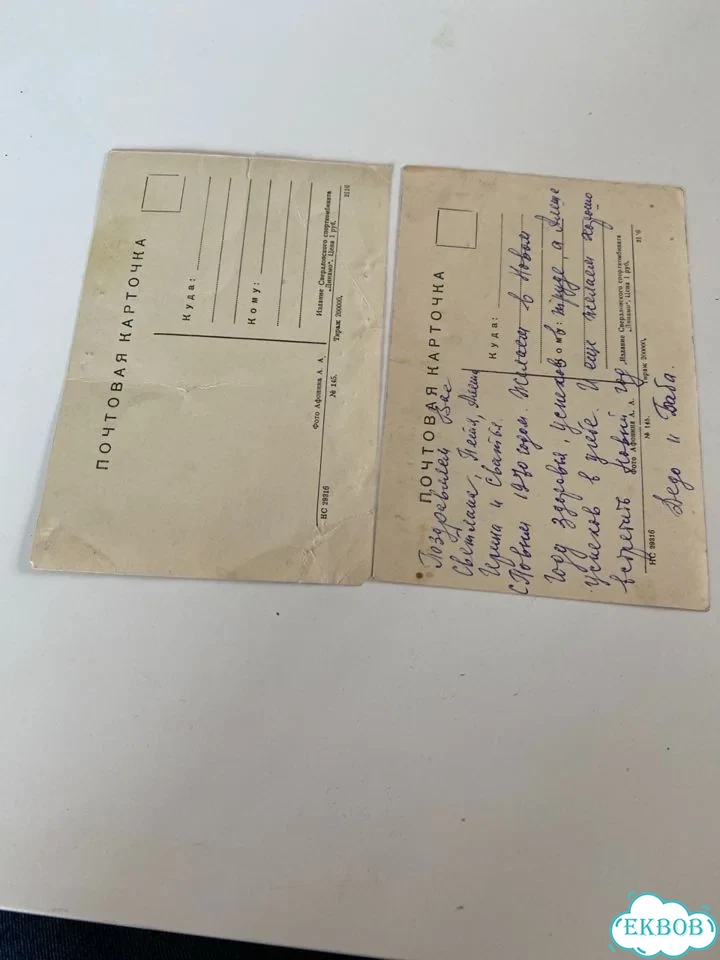 ПОЧТОВАЯ КАРТОЧКА
Куда:
Кому:
Издание Свердловского спорткомбината
„Динамо“. Цена 1 руб.
Фото Афонина А. А.
№ 145.
Тираж 200000.
НС 29316
ПОЧТОВАЯ КАРТОЧКА
Куда:
Издание Свердловского спорткомбината
„Динамо“. Цена 1 руб.
Фото Афонина А. А.
№ 145.
Тираж 200000.
НС 29316
Поздравляем Вас
Светлана, Петя, Алеша
Ирина и Сватья.
С Новым 1970 годом. Желаем в Новом
году здоровья, успехов в труде, а Алеше
успехов в учебе. И еще желаем хорошо
встретить Новый год
Дедо и Баба.
EKBOB